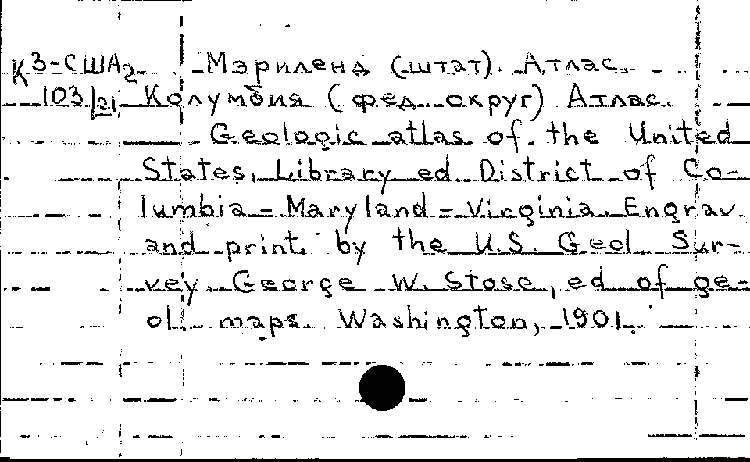 К 3-США2 Мэриленд (штат). Атлас.
103/21 Колумбия (фед. округ) Атлас.
Geologic atlas of the United
States, Library ed District of Co-
lumbia - Maryland - Virginia. Engrav.
and print. by the U.S. Geol Sur-
vey George W. Stose, ed of ge-
ol. maps. Washington, 1901.